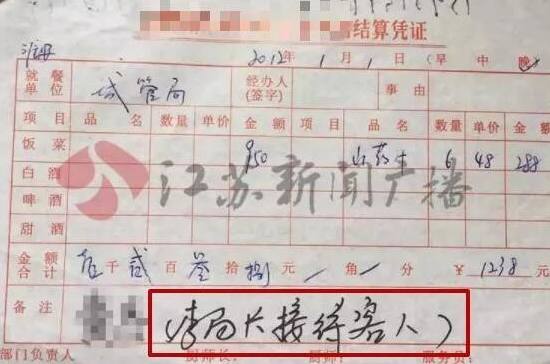 结算凭证
2012年1月1日(早 中 晚)
就餐单位 城管局 经办人(签字) 事由
项目 品名 数量 单价 金额 项目 品名 数量 单价 金
饭菜 950 6 48 288
白酒
啤酒
甜酒
江苏新闻广播
金额合计 千贰百叁拾捌元 角 分 ¥ 1238 元
备注 (李局长接待客人)
部门负责人 厨师长: 厨师: 服务员: